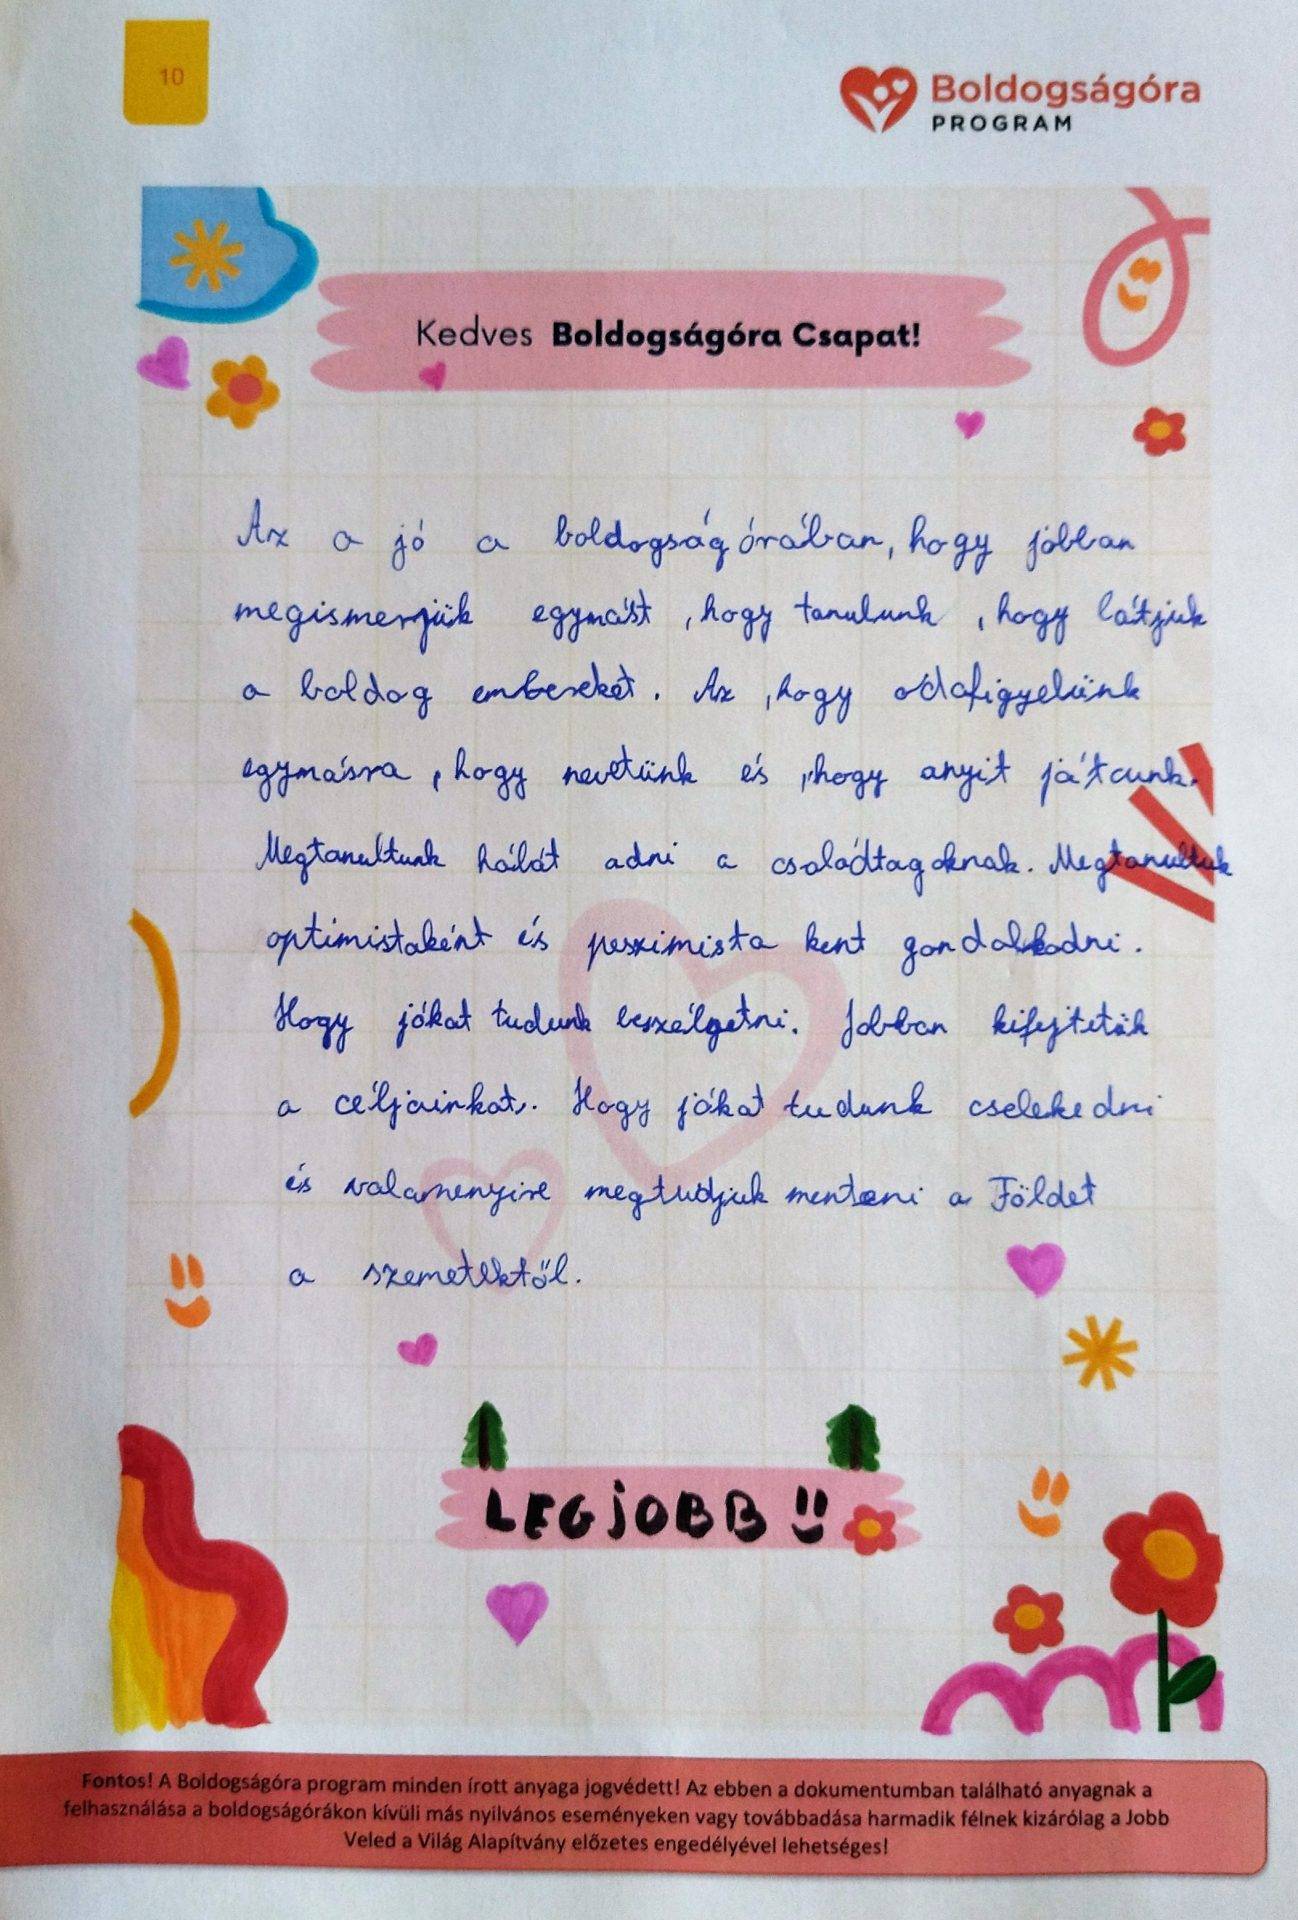 10
Boldogságóra
PROGRAM
Kedves Boldogságóra Csapat!
Az a jó a boldogságórában, hogy jobban
megismerjük egymást, hogy tanulunk, hogy látjuk
a boldog embereket. Az, hogy odafigyelünk
egymásra, hogy nevetünk és, hogy anyit játcunk.
Megtanultunk hálát adni a családtagoknak. Megtanultuk
optimistaként és peszimista kent gondolkodni.
Hogy jókat tudunk beszélgetni. Jobban kifejtetük
a céljainkat. Hogy jókat tudunk cselekedni
és valamenyire megtudjuk menteni a Földet
a szemetektől.
LEGJOBB
Fontos! A Boldogságóra program minden írott anyaga jogvédett! Az ebben a dokumentumban található anyagnak a
felhasználása a boldogságórákon kívüli más nyilvános eseményeken vagy továbbadása harmadik félnek kizárólag a Jobb
Veled a Világ Alapítvány előzetes engedélyével lehetséges!